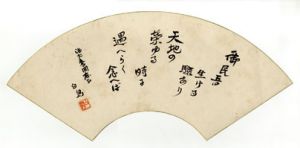 御民吾
生ける
驗あり
天地の
榮ゆる
時に
遇へらく
念へば